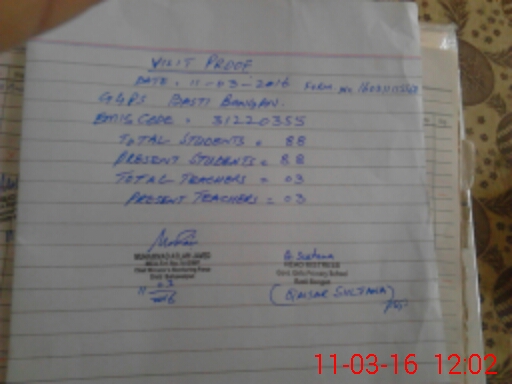 VISIT PROOF
DATE: 11-03-2016 FORM NO.
GGPS BASTI BANGAN.
EMIS CODE = 31220355
TOTAL STUDENTS = 88
PRESENT STUDENTS = 88
TOTAL TEACHERS = 03
PRESENT TEACHERS = 03
MUHAMMAD ASLAM JAVED
Chief Minister's Monitoring Force
Distt. Bahawalpur
11
03
Q. Sultana
HEAD MISTRESS
Govt. Girls Primary School
Basti Bangan
(QAISAR SULTANA)
11-03-16 12:02